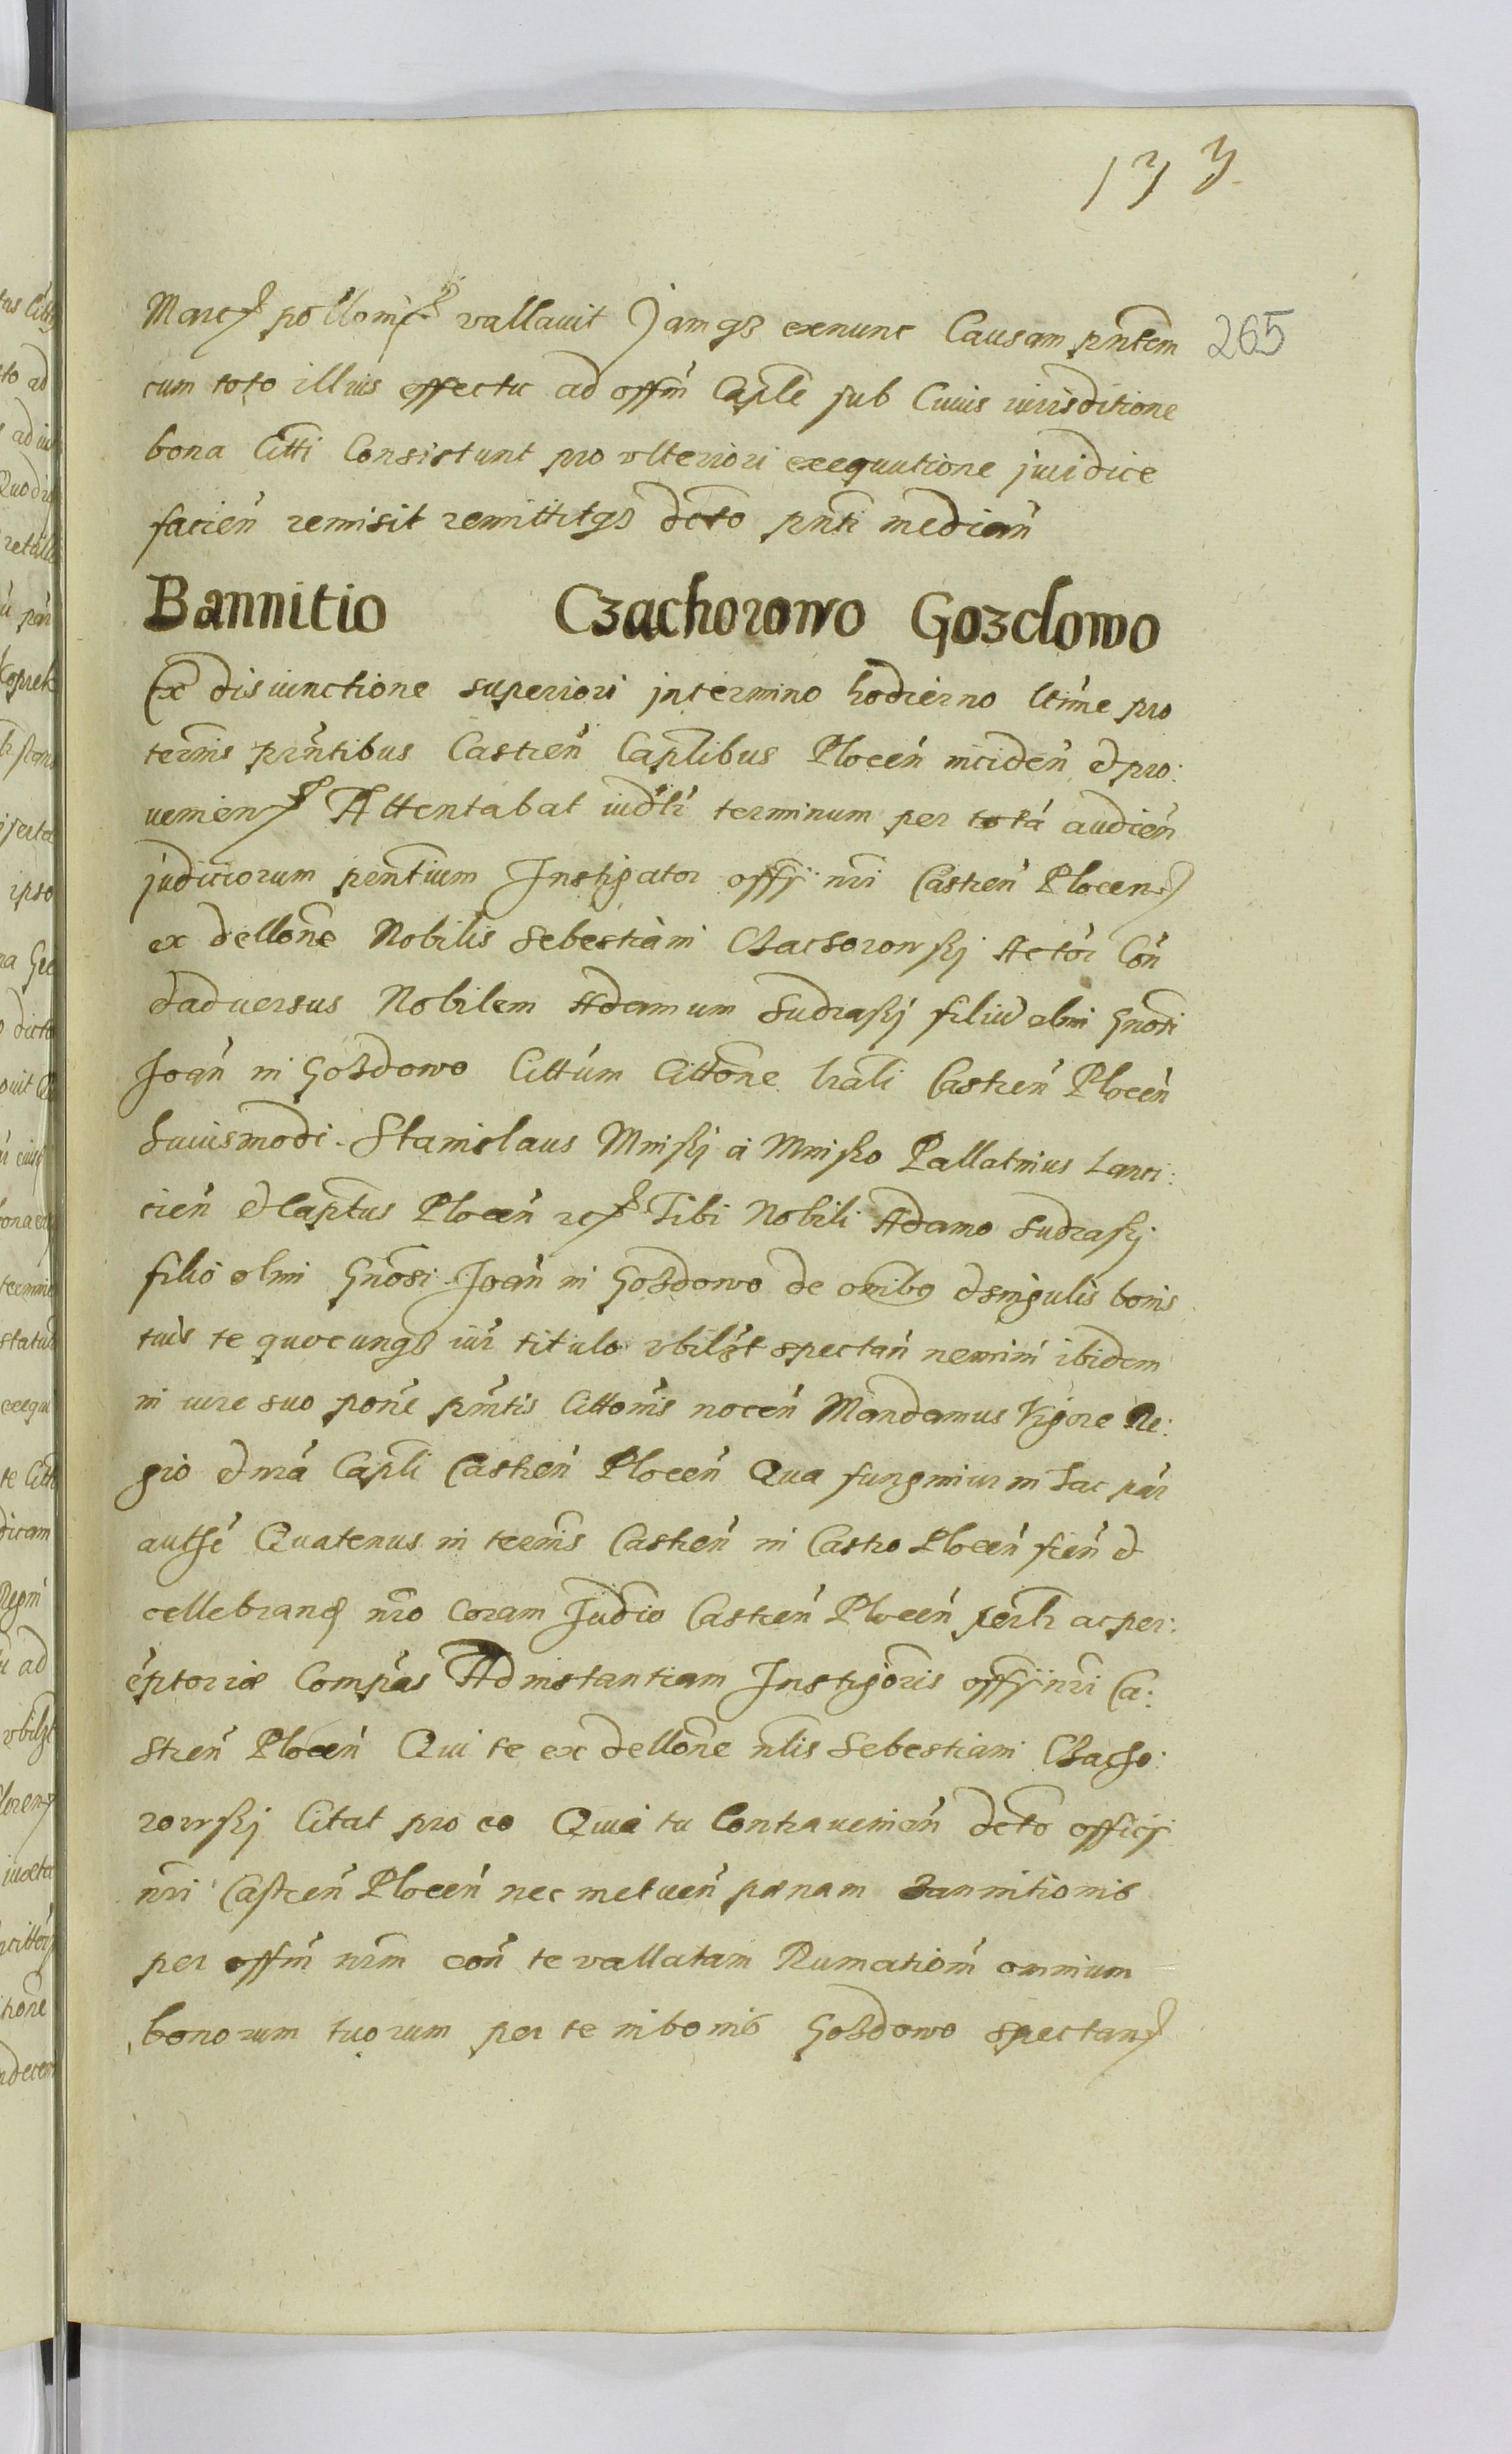 133
Marcß pollomcß vallavit Jamqs exnunc Causam pntem 265
cum toto illius effectu ad offm Caple sub Cuius iurisditione
bona Citti Consistunt pro ulteriori exequutione juridice
facien remisit remittitqs dcto pnti median
Bannitio Czachorowo Gozdowo
Ex disiunctione superiori intermino hodierno ltime pro
termis pntibus Castren Caplibus Plocen inciden et pro:
venien Attentabat iudlr terminum per totá audien
judiciorum pentium Instigator offij nri Castren Plocens
ex dellone Nobilis Sebestiani Czachorowskj Actor Con
et adversus Nobilem Adamum Sudraskj filiu olmi Gnosi
Joan in Gozdowo Cittum Cittone tali Castren Plocen
huiusmodi. Stanislaus Mniskj á Mnisko Pallatinus Lanci:
cien et Captus Plocen rc Tibi Nobili Adamo Sudraskj
filio olmi Gnosi Joan in Gozdowo de omibq et singulis bonis
tuis te quocunqs iur titulo vbilzt spectan nemini ibidem
in iure suo pone pntis Cittonis nocen Mandamus Vigore Re:
gio et nrá Capli Castren Plocen Qua fungimur in hac par
authe Quatenus in termis Castren in Castro Plocen fien et
cellebrand nro Coram Judicio Castren Plocen perlr ac per:
eptorie Compas Ad instantiam Instigoris offij nri Ca:
stren Plocen Qui te ex dellone nlis Sebestiani Czacho:
rowskj Citat pro eo Quia tu Contravenian dcto officij
nri Castren Plocen nec metuen pænam Bannitionis
per offm nrm con te vallatam Rumatiom omnium
bonorum tuorum per te in bonis Gozdowo spectan